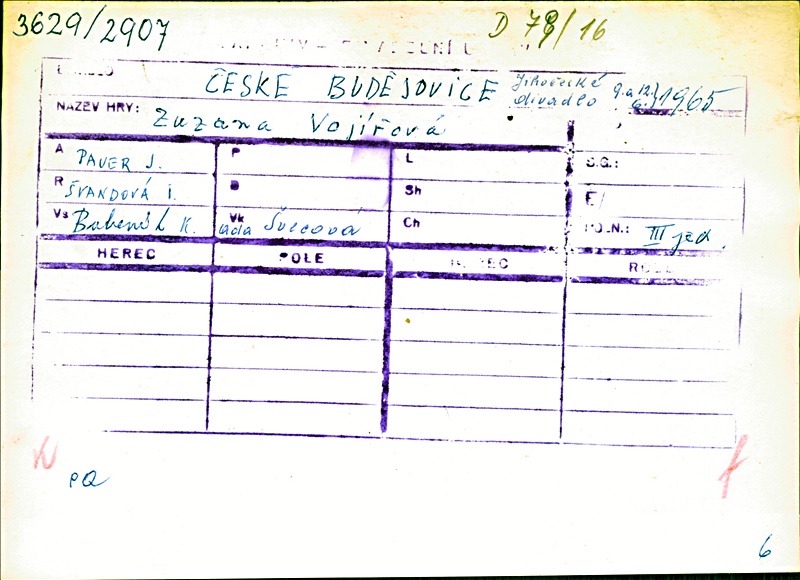 3629/2907
D 78/16
ČESKÉ BUDĚJOVICE Jihočeské divadlo 9. a 12. 6. 1965
NÁZEV HRY: Zuzana Vojířová
A PAVER J. P L S.G.:
R ŠVANDOVÁ I. D Sh F/
Vs Bubeník K. Vk Švecová Ch POZN.: III jed.
HEREC ROLE HEREC ROLE
6